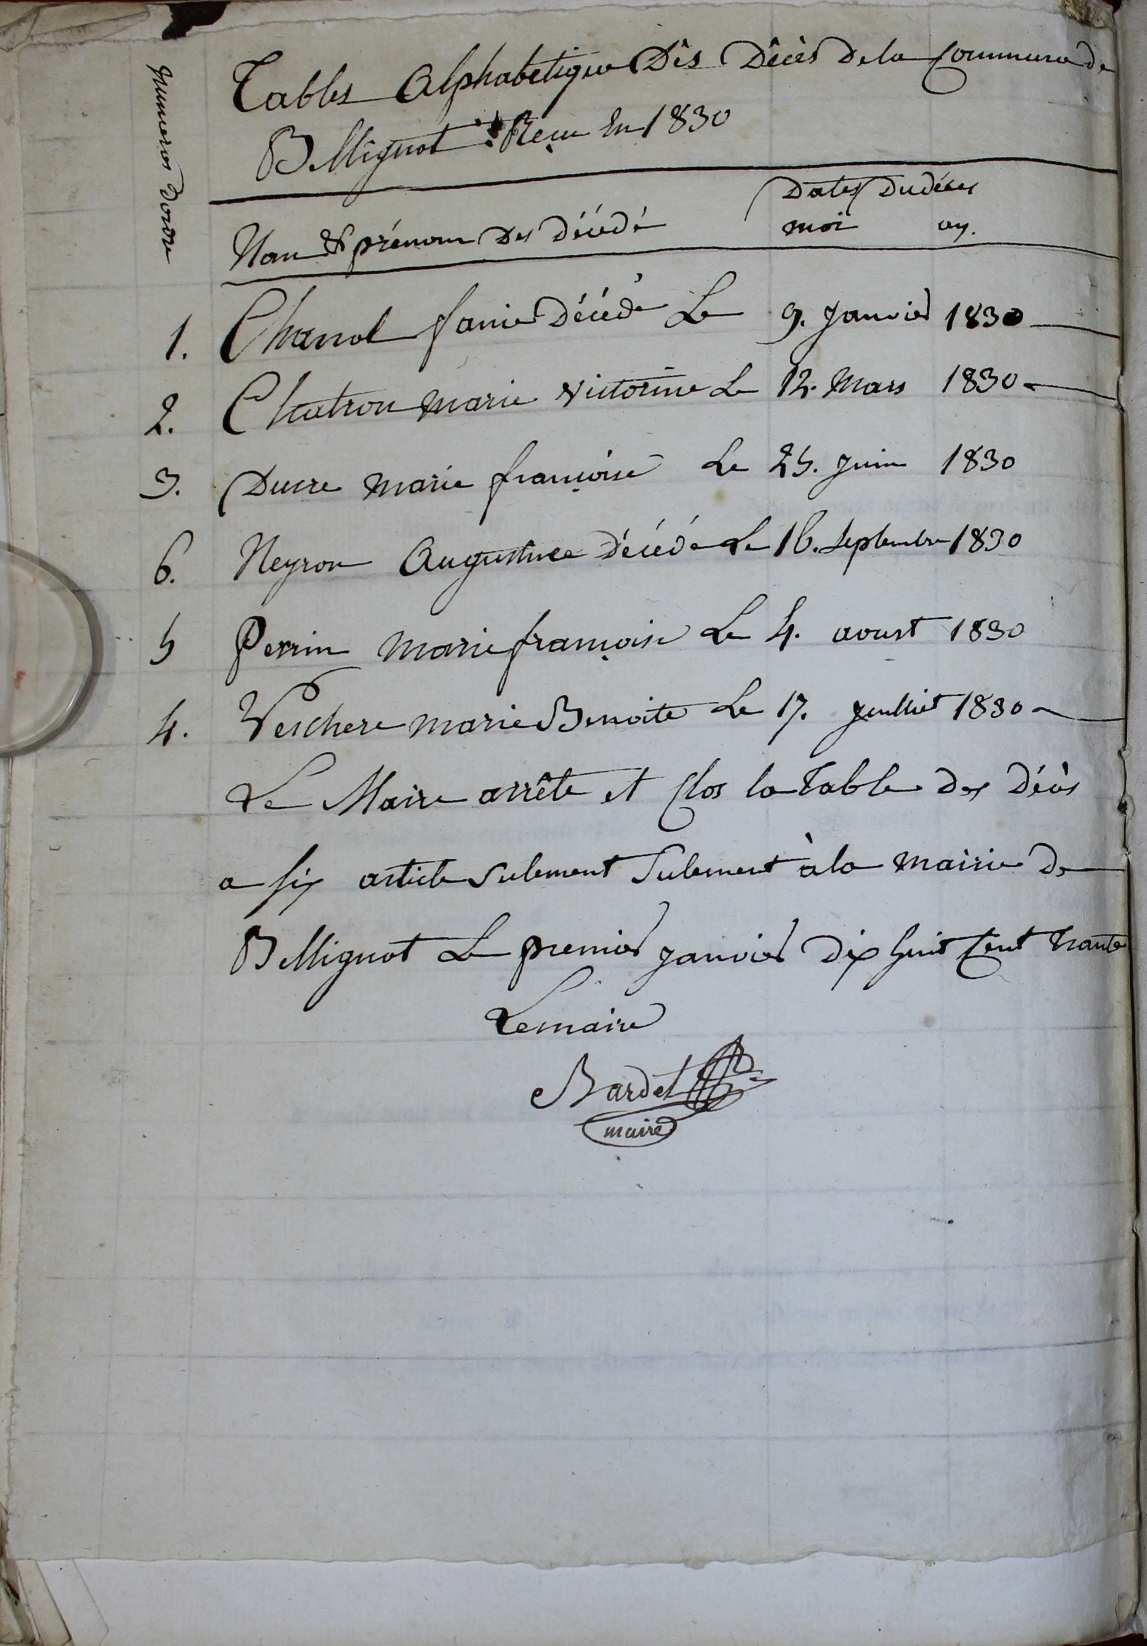 Numeros dordre
Tables Alphabetique Dês Dêcès De la Commune de
Bellignot Reçu En 1830
Dates Du décès
Nom & prénom Des Décédé moi an.
1. Chanol Décédé Le 9. Janvier 1830
2. Chatron Marie Victorine Le 12. Mars 1830
3. Ducre Marie françoise Le 25. Juin 1830
6. Neyron Augustine Décédé Le 16. Septembre 1830
5 Perrin Marie françoise Le 4. aoust 1830
4. Veschere Marie Benoite Le 17. Juilliet 1830
Le Maire arrête et Clos la Table Des Décès
a Six article Sulement Sulement à la Mairie De
Bellignot Le premier Janvier Dix huit Cent Trante
Le maire
Bardet
maire